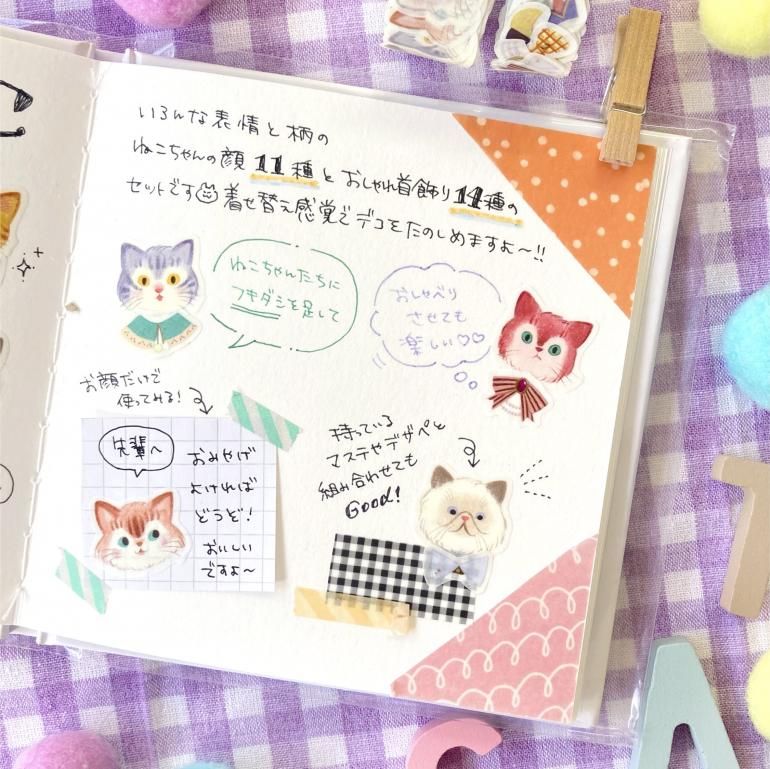 いろんな表情と柄の
ねこちゃんの顔11種とおしゃれ首飾り11種の
セットです 着せ替え感覚でデコをたのしめますよ〜!!
ねこちゃんたちに
フキダシを足して
おしゃべり
させても
楽しい♡♡
お顔だけで
使ってみる!
先輩へ
おみやげ
よければ
どうぞ!
おいしい
ですよ〜
持っている
マステやデザペと
組み合わせても
Good!
C
A
T